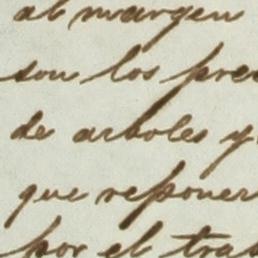 al margen
son los pre
de arboles y
que reponer
por el tras